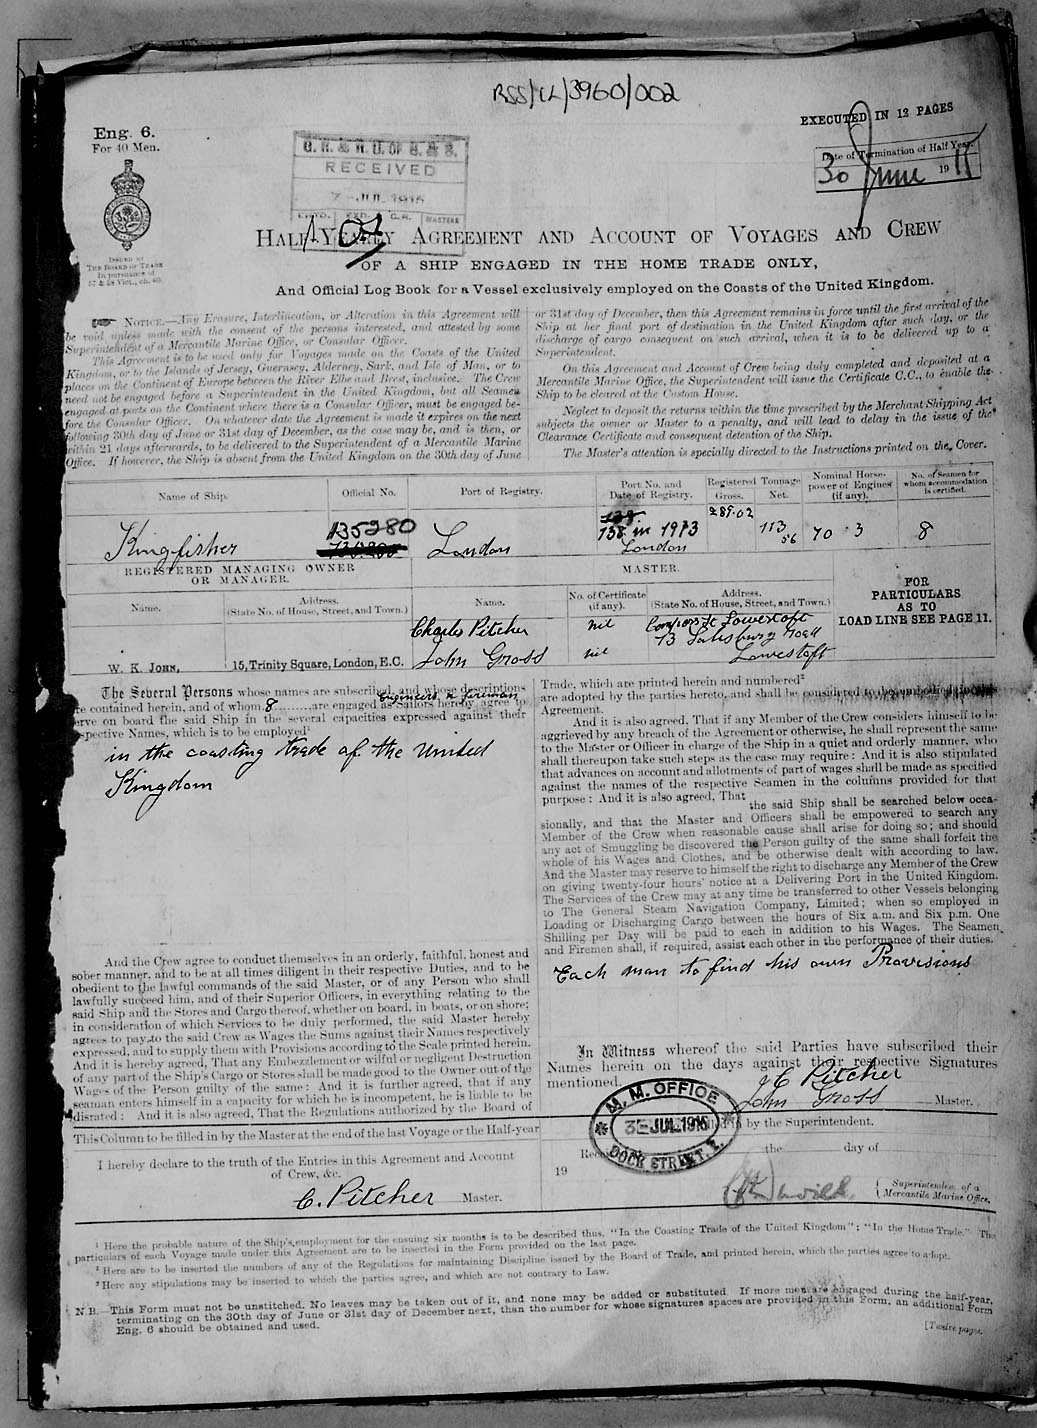 RSS/CL/3960/002
Eng. 6.
For 40 Men.
EXECUTED IN 12 PAGES
Date of Termination of Half Year.
30 June 19
RECEIVED
7 - JUL 1915
MASTERS
ISSUED BY
THE BOARD OF TRADE
In pursuance of
57 & 58 Vict., ch. 60.
HALF-YEARLY AGREEMENT AND ACCOUNT OF VOYAGES AND CREW
OF A SHIP ENGAGED IN THE HOME TRADE ONLY,
And Official Log Book for a Vessel exclusively employed on the Coasts of the United Kingdom.
NOTICE.—Any Erasure, Interlineation, or Alteration in this Agreement will
be void unless made with the consent of the persons interested, and attested by some
Superintendent of a Mercantile Marine Office, or Consular Officer.
This Agreement is to be used only for Voyages made on the Coasts of the United
Kingdom, or to the Islands of Jersey, Guernsey, Alderney, Sark, and Isle of Man, or to
places on the Continent of Europe between the River Elbe and Brest, inclusive. The Crew
need not be engaged before a Superintendent in the United Kingdom, but all Seamen
engaged at ports on the Continent where there is a Consular Officer, must be engaged be-
fore the Consular Officer. On whatever date the Agreement is made it expires on the next
following 30th day of June or 31st day of December, as the case may be, and is then, or
within 21 days afterwards, to be delivered to the Superintendent of a Mercantile Marine
Office. If however, the Ship is absent from the United Kingdom on the 30th day of June
or 31st day of December, then this Agreement remains in force until the first arrival of the
Ship at her final port of destination in the United Kingdom after such day, or the
discharge of cargo consequent on such arrival, when it is to be delivered up to a
Superintendent.
On this Agreement and Account of Crew being duly completed and deposited at a
Mercantile Marine Office, the Superintendent will issue the Certificate C.C., to enable the
Ship to be cleared at the Custom House.
Neglect to deposit the returns within the time prescribed by the Merchant Shipping Act
subjects the owner or Master to a penalty, and will lead to delay in the issue of the
Clearance Certificate and consequent detention of the Ship.
The Master's attention is specially directed to the Instructions printed on the Cover.
Name of Ship. Official No. Port of Registry. Port No. and Date of Registry. Registered Tonnage Gross. Net. Nominal Horse-power of Engines (if any). No. of Seamen for whom accommodation is certified.
Kingfisher 135280 London 138 in 1913 London 289.02 113 56 70 · 3 8
REGISTERED MANAGING OWNER
OR MANAGER.
MASTER.
FOR
PARTICULARS
AS TO
LOAD LINE SEE PAGE 11.
Name. Address. (State No. of House, Street, and Town.) Name. No. of Certificate (if any). Address. (State No. of House, Street, and Town.)
Charles Pitcher nil St Lowestoft
W. K. JOHN, 15, Trinity Square, London, E.C. John Gross nil 73 Salisbury Road
Lowestoft
The Several Persons whose names are subscribed, and whose descriptions
are contained herein, and of whom 8 are engaged as Sailors Engineers & Firemen hereby agree to
serve on board the said Ship in the several capacities expressed against their
respective Names, which is to be employed¹
in the coasting trade of the United
Kingdom
And the Crew agree to conduct themselves in an orderly, faithful, honest and
sober manner, and to be at all times diligent in their respective Duties, and to be
obedient to the lawful commands of the said Master, or of any Person who shall
lawfully succeed him, and of their Superior Officers, in everything relating to the
said Ship and the Stores and Cargo thereof, whether on board, in boats, or on shore;
in consideration of which Services to be duly performed, the said Master hereby
agrees to pay to the said Crew as Wages the Sums against their Names respectively
expressed, and to supply them with Provisions according to the Scale printed herein.
And it is hereby agreed, That any Embezzlement or wilful or negligent Destruction
of any part of the Ship's Cargo or Stores shall be made good to the Owner out of the
Wages of the Person guilty of the same: And it is further agreed, that if any
seaman enters himself in a capacity for which he is incompetent, he is liable to be
disrated: And it is also agreed, That the Regulations authorized by the Board of
Trade, which are printed herein and numbered²
are adopted by the parties hereto, and shall be considered to be embodied in this
Agreement.
And it is also agreed, That if any Member of the Crew considers himself to be
aggrieved by any breach of the Agreement or otherwise, he shall represent the same
to the Master or Officer in charge of the Ship in a quiet and orderly manner, who
shall thereupon take such steps as the case may require: And it is also stipulated
that advances on account and allotments of part of wages shall be made as specified
against the names of the respective Seamen in the columns provided for that
purpose: And it is also agreed, That the said Ship shall be searched below occa-
sionally, and that the Master and Officers shall be empowered to search any
Member of the Crew when reasonable cause shall arise for doing so; and should
any act of Smuggling be discovered the Person guilty of the same shall forfeit the
whole of his Wages and Clothes, and be otherwise dealt with according to law.
And the Master may reserve to himself the right to discharge any Member of the Crew
on giving twenty-four hours' notice at a Delivering Port in the United Kingdom.
The Services of the Crew may at any time be transferred to other Vessels belonging
to The General Steam Navigation Company, Limited; when so employed in
Loading or Discharging Cargo between the hours of Six a.m. and Six p.m. One
Shilling per Day will be paid to each in addition to his Wages. The Seamen
and Firemen shall, if required, assist each other in the performance of their duties.
Each man to find his own Provisions
In Witness whereof the said Parties have subscribed their
Names herein on the days against their respective Signatures
mentioned.
C Pitcher
John Gross Master.
This Column to be filled in by the Master at the end of the last Voyage or the Half-year
I hereby declare to the truth of the Entries in this Agreement and Account
of Crew, &c.
C. Pitcher Master.
M. M. OFFICE
3 - JUL 1915
DOCK STREET, E.
by the Superintendent.
the day of
19
Superintendent of a
Mercantile Marine Office.
¹ Here the probable nature of the Ship's employment for the ensuing six months is to be described thus, "In the Coasting Trade of the United Kingdom"; "In the Home Trade." The
particulars of each Voyage made under this Agreement are to be inserted in the Form provided on the last page.
² Here are to be inserted the numbers of any of the Regulations for maintaining Discipline issued by the Board of Trade, and printed herein, which the parties agree to adopt.
³ Here any stipulations may be inserted to which the parties agree, and which are not contrary to Law.
N.B.—This Form must not be unstitched. No leaves may be taken out of it, and none may be added or substituted. If more men are engaged during the half-year,
terminating on the 30th day of June or 31st day of December next, than the number for whose signatures spaces are provided in this Form, an additional Form
Eng. 6 should be obtained and used.
[Twelve pages.